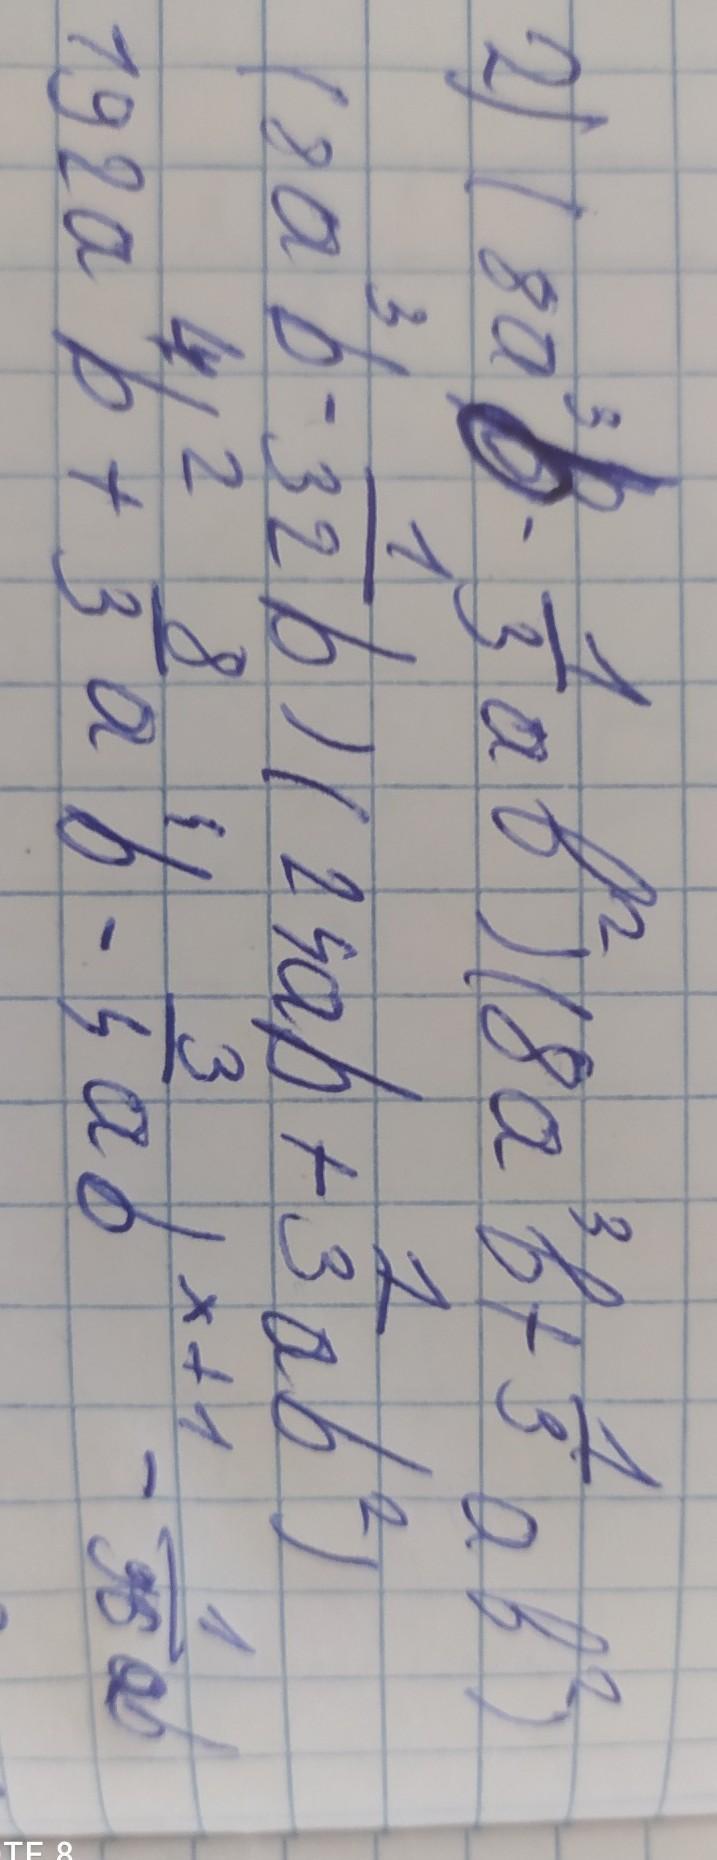 2) (8a³b - 1/3 ab²)(8a³b + 1/3 ab²)
(8a³b - 1/32 b)(24ab + 1/3 ab²)
192a⁴b² + 8/3 a⁴b - 3/4 ab^(x+1) - 1/96 ab
OTE 8